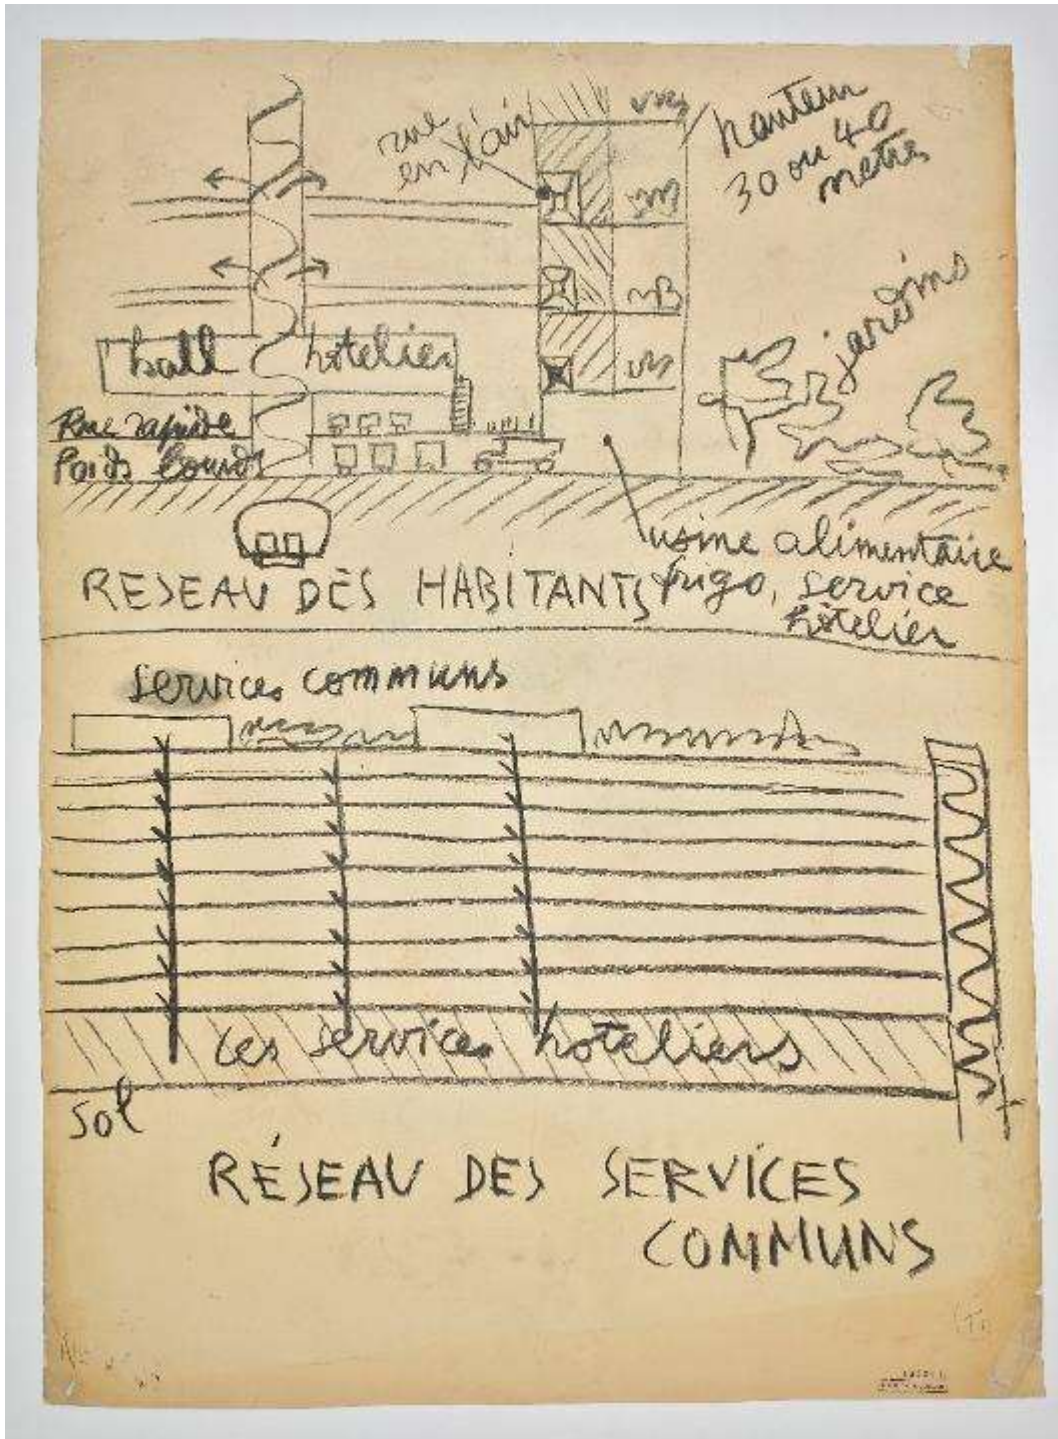 rue
en l'air
hauteur
30 ou 40
metres
jardins
hall hotelier
Rue rapide
Poids lourds
usine alimentaire
RESEAU DES HABITANTS frigo, service
hôtelier
services communs
les services hoteliers
sol
RÉSEAU DES SERVICES
COMMUNS